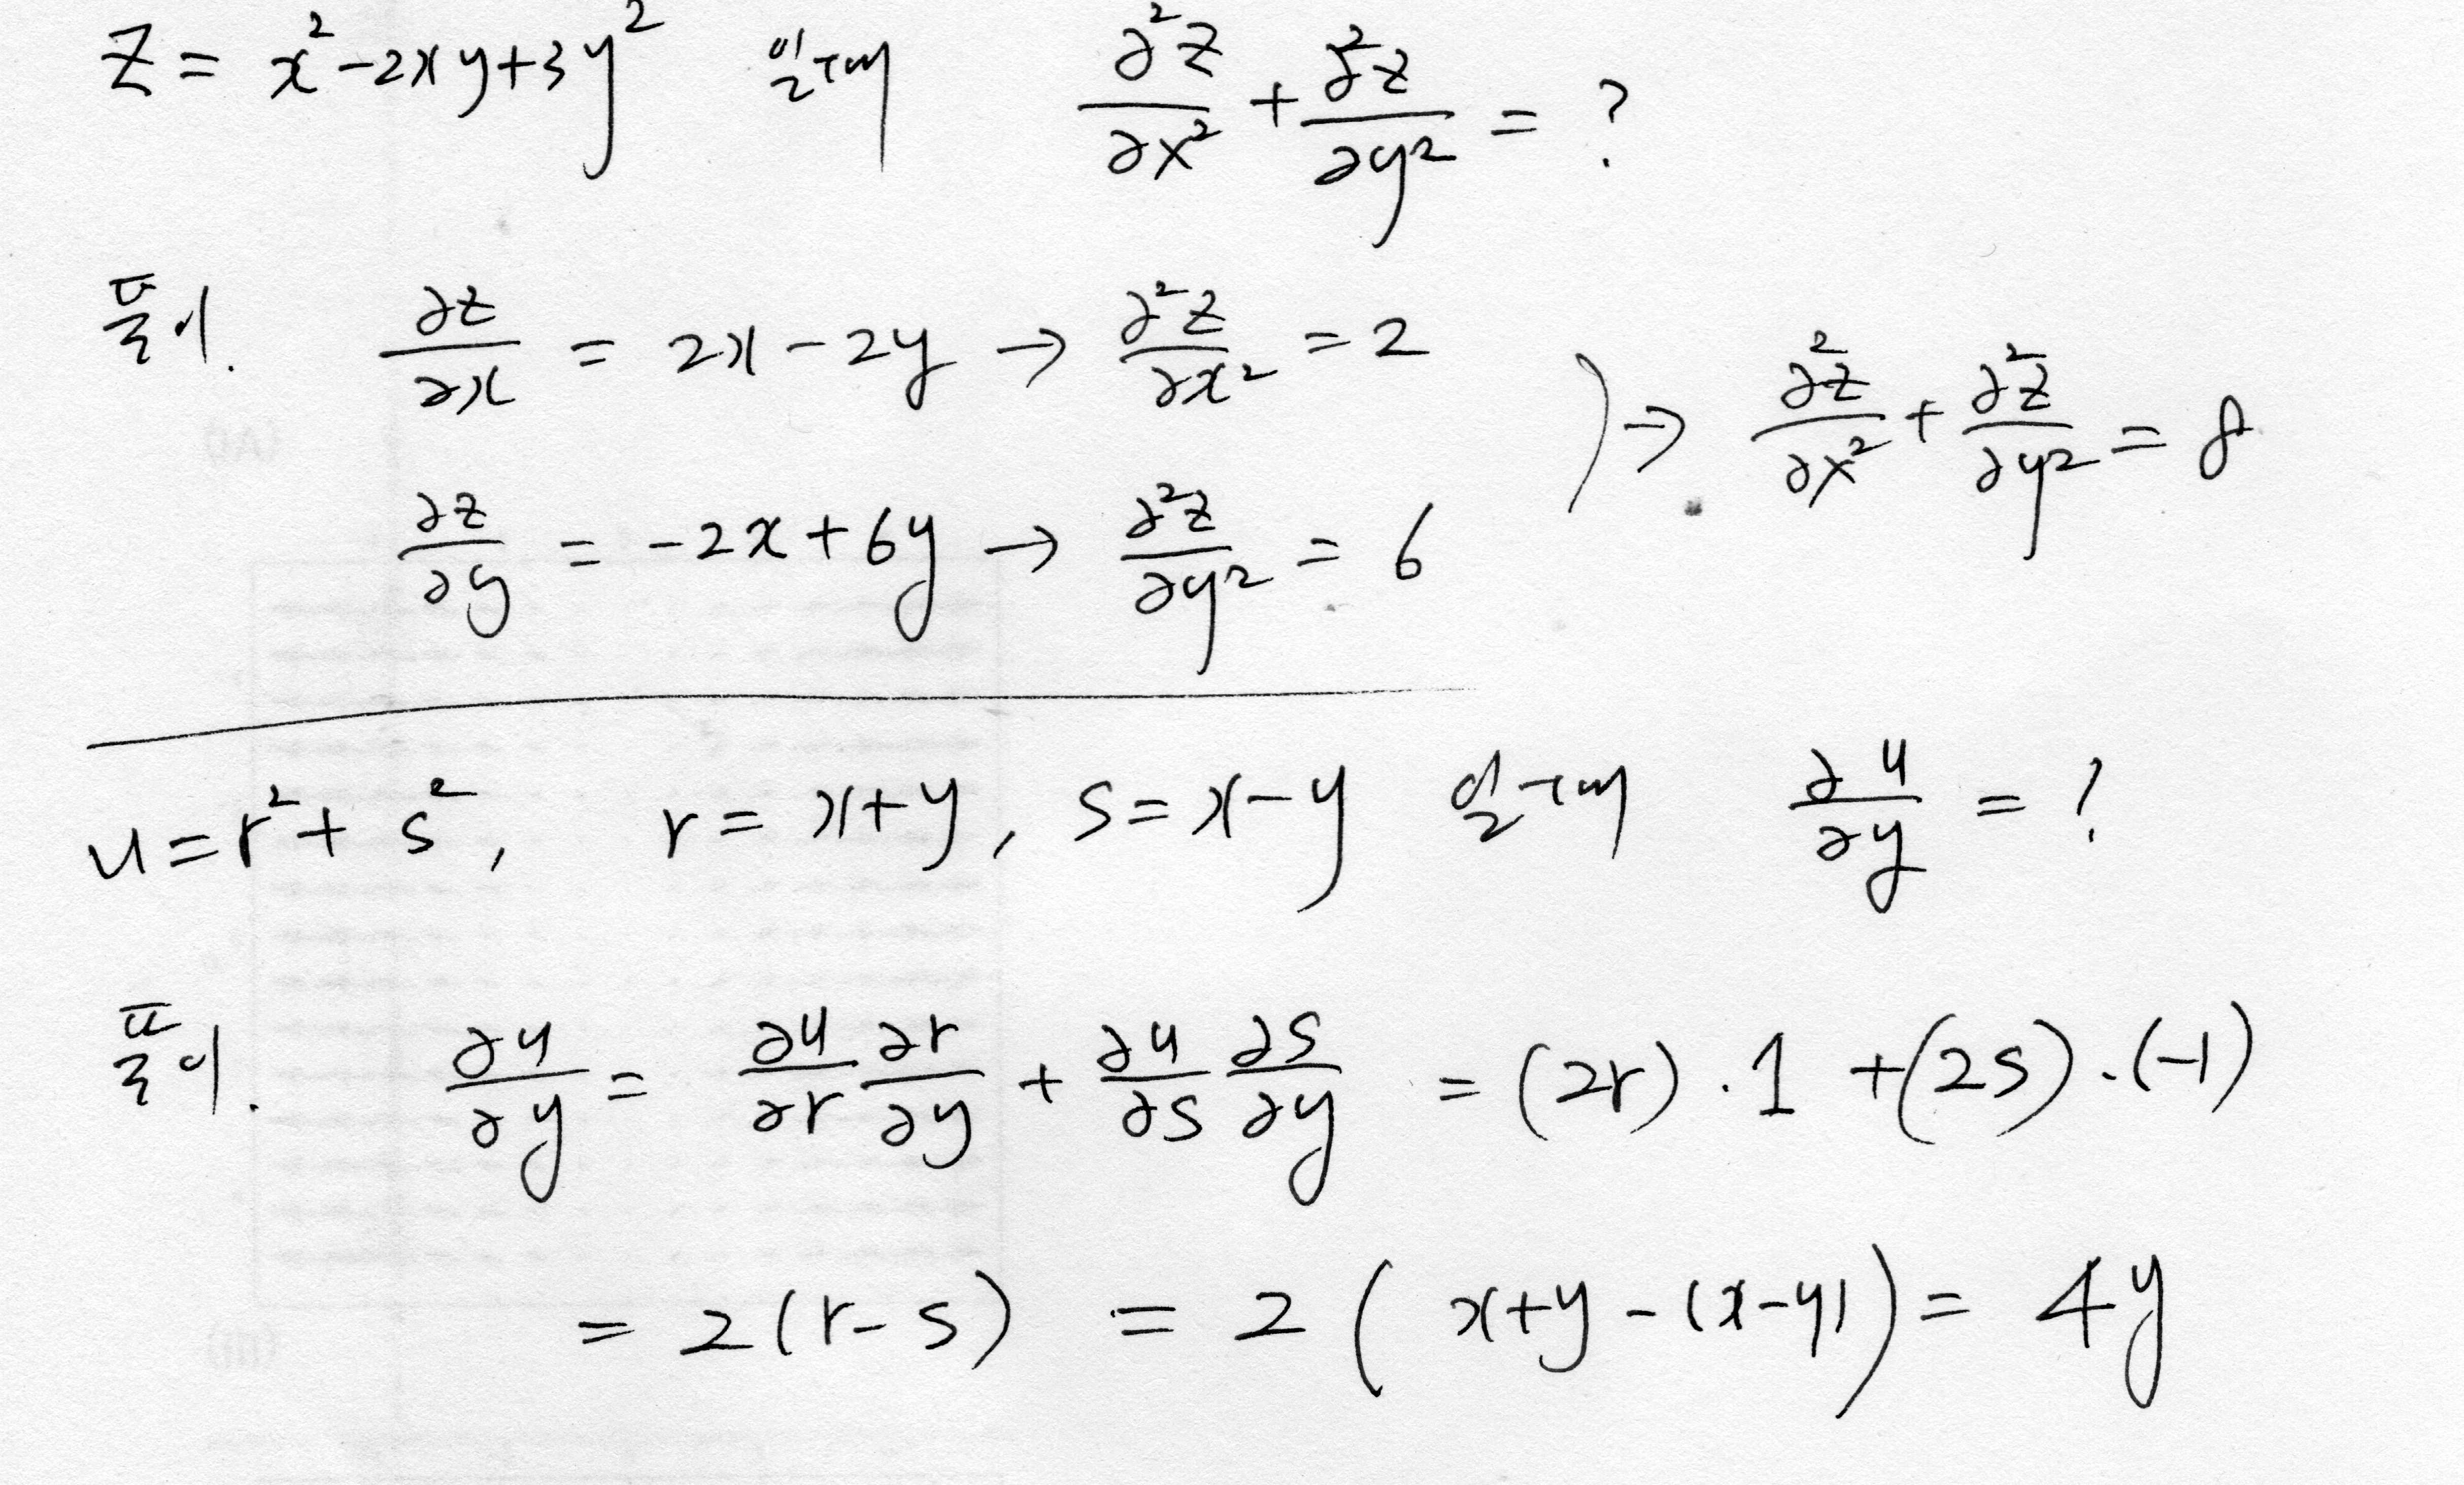 z = x² - 2xy + 3y² 일때 ∂²z/∂x² + ∂²z/∂y² = ?
풀이. ∂z/∂x = 2x - 2y → ∂²z/∂x² = 2
) → ∂²z/∂x² + ∂²z/∂y² = 8
∂z/∂y = -2x + 6y → ∂²z/∂y² = 6
u = r² + s², r = x+y, s = x-y 일때 ∂u/∂y = ?
풀이. ∂u/∂y = ∂u/∂r ∂r/∂y + ∂u/∂s ∂s/∂y = (2r)·1 + (2s)·(-1)
= 2(r-s) = 2(x+y-(x-y)) = 4y